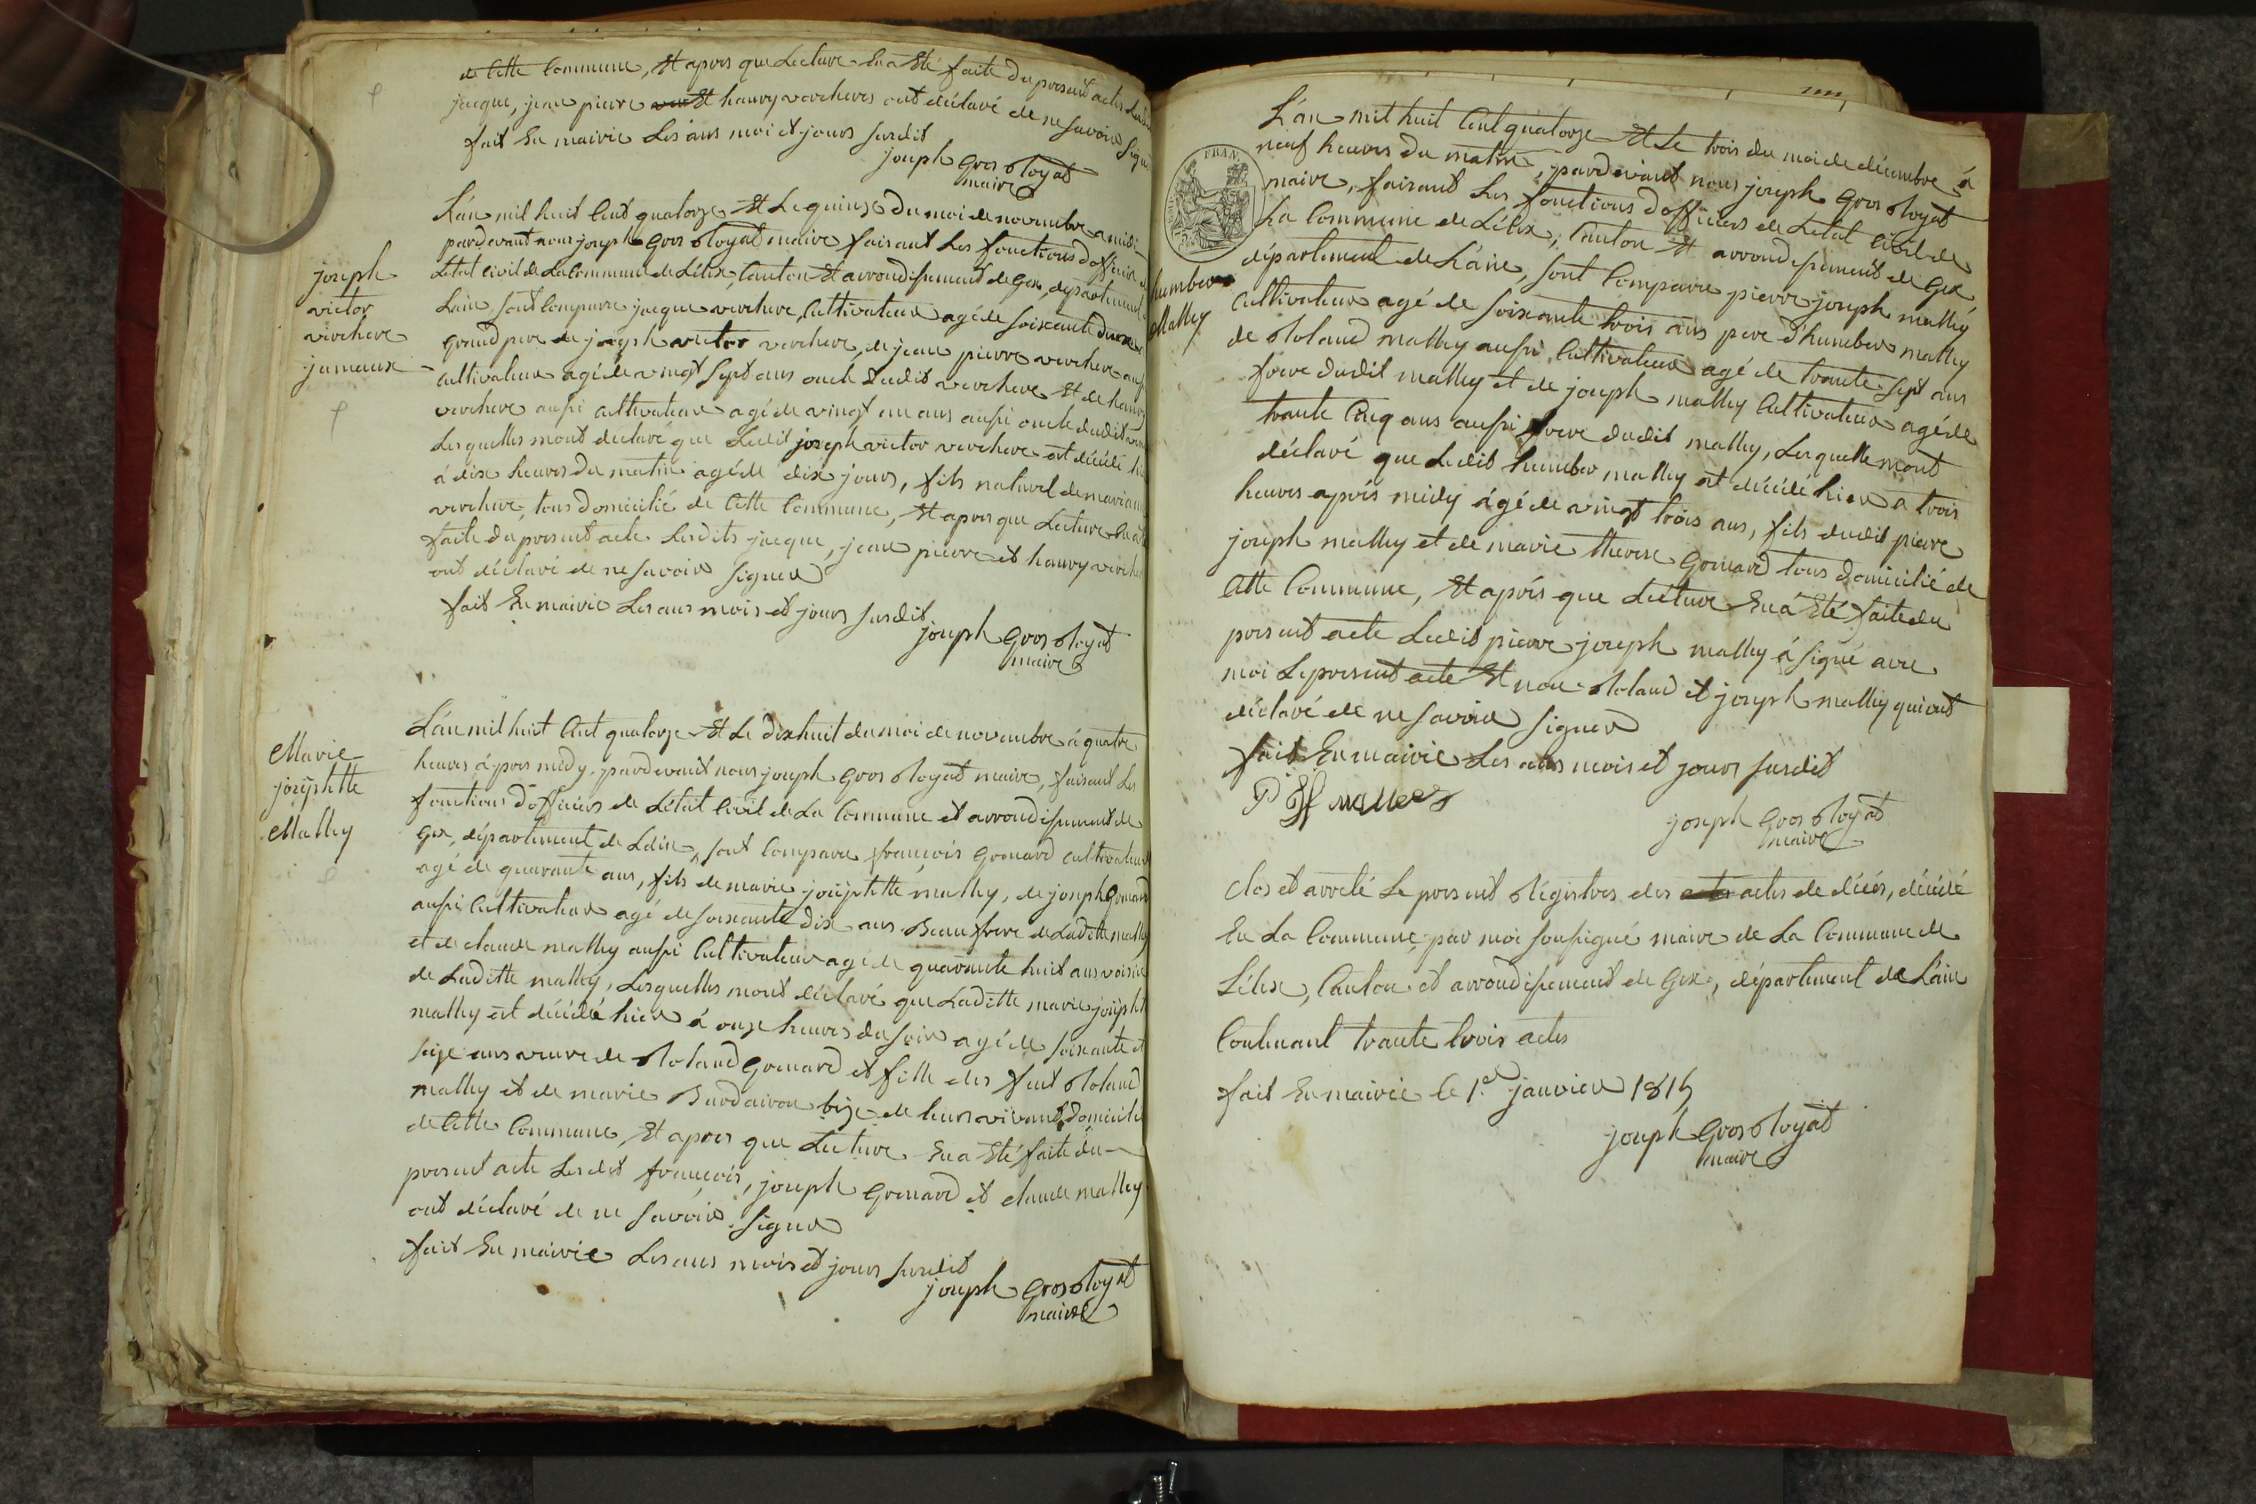 de Cette Commune, Et apres que Lecture En a Eté faite du presend actes
jacque, jean piere et haury verchere ont déclaré de ne Savoir Signe
fait En mairie Les ans moi et jours Susdit
joseph Gros Royat
maire
joseph
victor
verchere
jumeaux
L'an mil huit Cent quatorze Et Le quinze du moi de novembre a midi
pardevant nous joseph Gros Royat maire faisant Les fonctions d'officier
Létat Civil de La Commune de Lélex, Canton Et arrondisement de Gex, département
Lain, sont Comparu jacque verchere, Cultivateur agé de soixante
grand pere de joseph victor verchere, de jean pierre verchere
Cultivateur agé de vingt sept ans oncle dudit verchere Et de haury
verchere aussi Cultivateur agé de vingt un ans aussi oncle dudit
Lesquelles mont declaré que Ledit joseph victor verchere est décédé
á dix heures du matin agé de dix jours, fils naturel de
verchere, tous domicilié de Cette Commune, Et apres que Lecture
faite du presend acte Lesdits jacque, jean pierre et haury
ont déclaré de ne Savoir Signer
fait En mairie Les ans mois et jours Susdit
joseph Gros Royat
maire
Marie
joséphtte
Malley
L'an mil huit Cent quatorze Et Le dix huit du moi de novembre á quatre
heures á pres midy, pardevant nous joseph Gros Royat maire, faisant Les
fonctions d'officiers de Létat Civil de La Commune et arrondisement de
Gex, département de Lain, sont Comparu françois Gonard cultivateur
agé de quarante ans, fils de marie joséphtte malley, de joseph Gonard
aussi Cultivateur agé de soixante dix ans Beau frere de Laditte malley
et de claude malley aussi Cultivateur agé de quarante huit ans voisin
de Laditte malley, Lesquelles mont déclaré que Laditte marie
malley est décédé hier á onze heures du soir agé de soixante et
seize ans veuve de Roland Gonard et fille des feut Roland
malley et de marie de leurs vivant Domicilié
de Cette Commune, Et apres que Lecture En a Eté faite du
presend acte Lesdit françois, joseph Gonard et claude malley
ont déclaré de ne Savoir Signer
fait En mairie Les ans mois et jours Susdit
joseph Gros Royat
maire
FRAN.
humber
Malley
L'an mil huit Cent quatorze Et Le trois du moi de décembre á
neuf heures du matin, pardevant nous joseph Gros Royat
maire, faisant Les fonctions d'officiers de Létat Civil de
La Commune de Lélex, Canton Et arrondisement de Gex
département de L'ain, sont Comparu pierre joseph malley
Cultivateur agé de soixante trois ans pere d'humber malley
de Roland malley aussi Cultivateur agé de trante sept ans
frere dudit malley et de joseph malley Cultivateur agé de
trante Cinq ans aussi frere dudit malley, Lesquelle mont
déclaré que Ledit humber malley est décédé hier a trois
heures aprés midy ágé de vingt trois ans, fils dudit pierre
joseph malley et de marie therese Gonard tous domicilié de
Cette Commune, Et aprés que Lécture En á Eté faite du
presend acte Ledit pierre joseph malley á Signé avec
moi Le presend acte Et non Roland et joseph malley qui ont
déclaré de ne Savoir Signer
fait En mairie Les ans mois et jours Susdit
joseph Gros Royat
maire
Clos et arreté Le presend Régistres des actes actes de décés, décédé
En La Commune, par moi soussigné maire de La Commune de
Lélex, Canton et arrondisement de Gex, département de L'ain
Contenant trante trois actes
fait En mairie Le 1er janvier 1815
joseph Gros Royat
maire